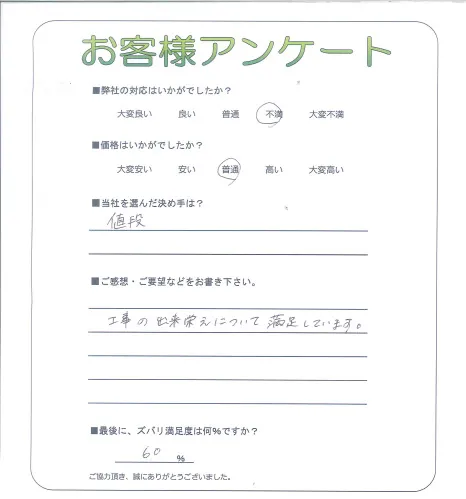 お客様アンケート
■弊社の対応はいかがでしたか？
大変良い 良い 普通 不満 大変不満
■価格はいかがでしたか？
大変安い 安い 普通 高い 大変高い
■当社を選んだ決め手は？
値段
■ご感想・ご要望などをお書き下さい。
工事の出来栄えについて満足しています。
■最後に、ズバリ満足度は何%ですか？
60 %
ご協力頂き、誠にありがとうございました。